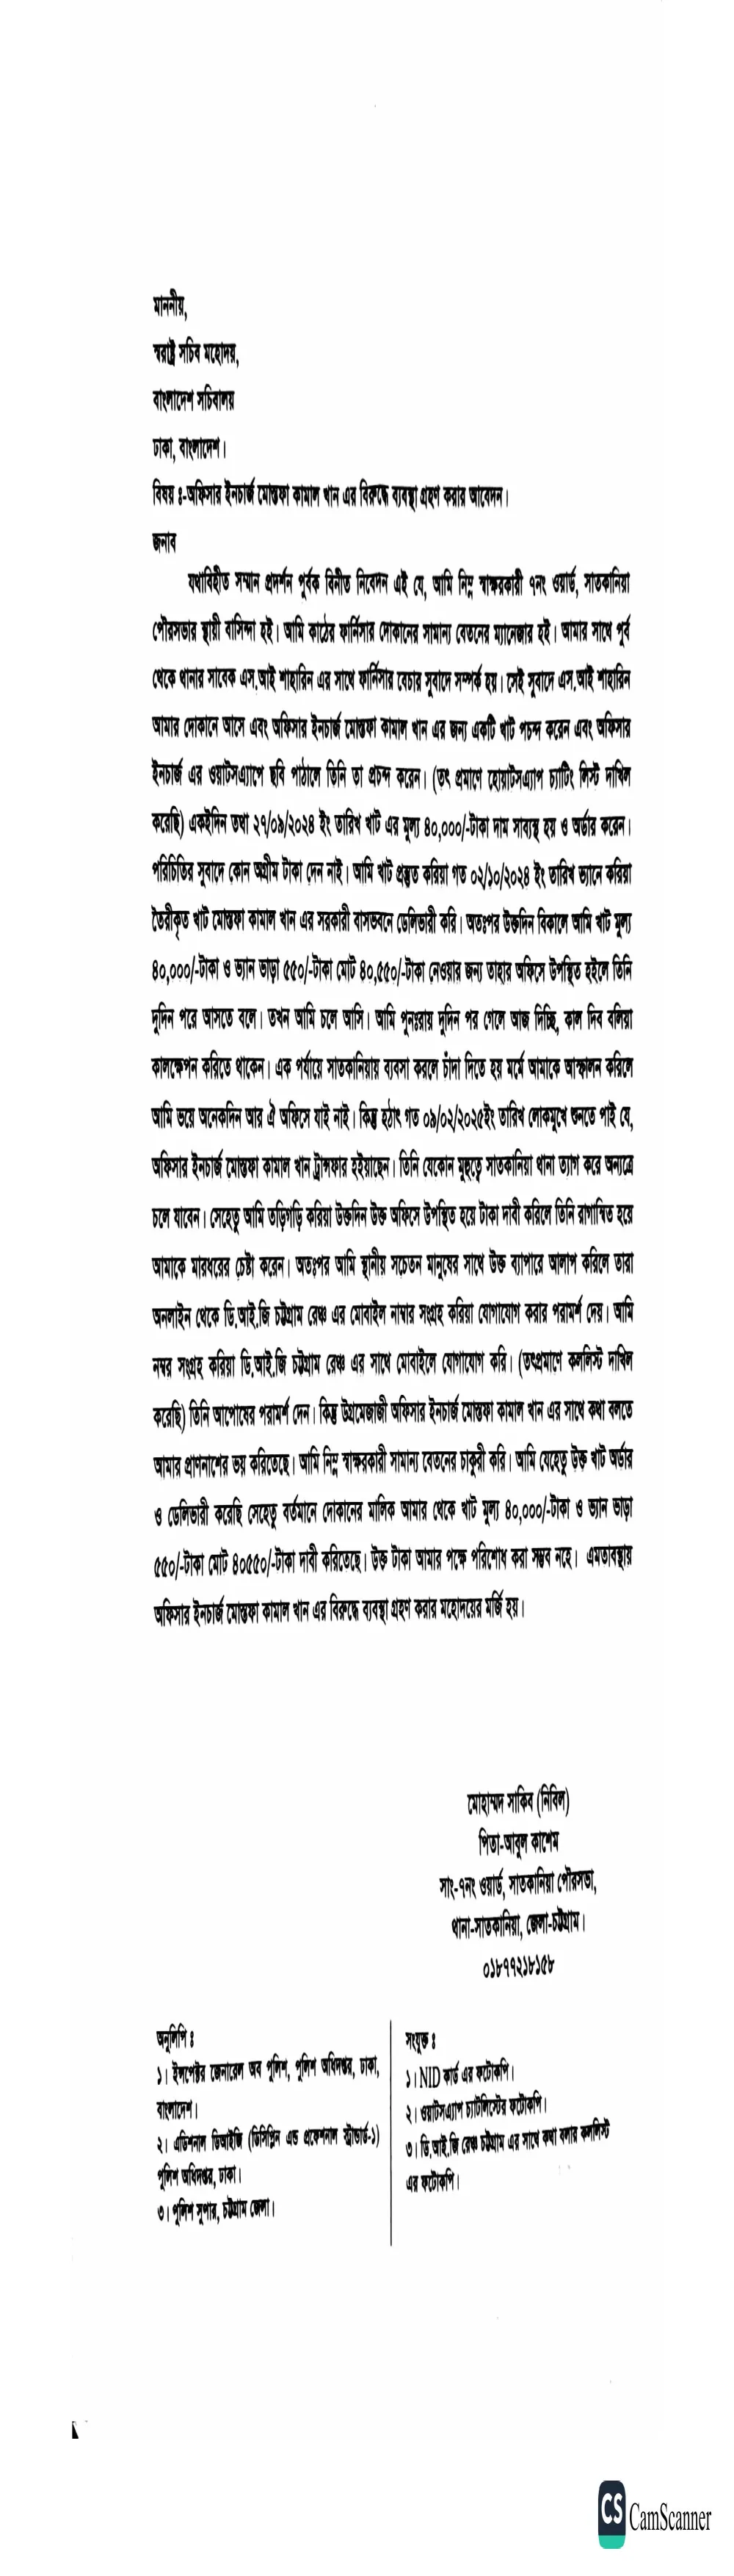 মাননীয়,
স্বরাষ্ট্র সচিব মহোদয়,
বাংলাদেশ সচিবালয়
ঢাকা, বাংলাদেশ।
বিষয় ঃ-অফিসার ইনচার্জ মোস্তফা কামাল খান এর বিরুদ্ধে ব্যবস্থা গ্রহণ করার আবেদন।
জনাব
যথাবিহীত সম্মান প্রদর্শন পূর্বক বিনীত নিবেদন এই যে, আমি নিম্ন স্বাক্ষরকারী ৭নং ওয়ার্ড, সাতকানিয়া
পৌরসভার স্থায়ী বাসিন্দা হই। আমি কাঠের ফার্নিসার দোকানের সামান্য বেতনের ম্যানেজার হই। আমার সাথে পূর্ব
থেকে থানার সাবেক এস.আই শাহারিন এর সাথে ফার্নিসার বেচার সুবাদে সম্পর্ক হয়। সেই সুবাদে এস.আই শাহারিন
আমার দোকানে আসে এবং অফিসার ইনচার্জ মোস্তফা কামাল খান এর জন্য একটি খাট পচন্দ করেন এবং অফিসার
ইনচার্জ এর ওয়াটসএ্যাপে ছবি পাঠালে তিনি তা প্রচন্দ করেন। (তৎ প্রমাণে হোয়াটসএ্যাপ চ্যাটিং লিস্ট দাখিল
করেছি) একইদিন তথা ২৭/০৯/২০২৪ ইং তারিখ খাট এর মূল্য ৪০,০০০/-টাকা দাম সাব্যস্থ হয় ও অর্ডার করেন।
পরিচিতির সুবাদে কোন অগ্রীম টাকা দেন নাই। আমি খাট প্রস্তুত করিয়া গত ০২/১০/২০২৪ ইং তারিখ ভ্যানে করিয়া
তৈরীকৃত খাট মোস্তফা কামাল খান এর সরকারী বাসভবনে ডেলিভারী করি। অতঃপর উক্তদিন বিকালে আমি খাট মূল্য
৪০,০০০/-টাকা ও ভ্যান ভাড়া ৫৫০/-টাকা মোট ৪০,৫৫০/-টাকা নেওয়ার জন্য তাহার অফিসে উপস্থিত হইলে তিনি
দুদিন পরে আসতে বলে। তখন আমি চলে আসি। আমি পুনঃরায় দুদিন পর গেলে আজ দিচ্ছি, কাল দিব বলিয়া
কালক্ষেপন করিতে থাকেন। এক পর্যায়ে সাতকানিয়ায় ব্যবসা করলে চাঁদা দিতে হয় মর্মে আমাকে আস্ফালন করিলে
আমি ভয়ে অনেকদিন আর ঐ অফিসে যাই নাই। কিন্তু হঠাৎ গত ০৯/০২/২০২৫ইং তারিখ লোকমুখে শুনতে পাই যে,
অফিসার ইনচার্জ মোস্তফা কামাল খান ট্রান্সফার হইয়াছেন। তিনি যেকোন মূহুত্বে সাতকানিয়া থানা ত্যাগ করে অন্যত্রে
চলে যাবেন। সেহেতু আমি তড়িগড়ি করিয়া উক্তদিন উক্ত অফিসে উপস্থিত হয়ে টাকা দাবী করিলে তিনি রাগান্বিত হয়ে
আমাকে মারধরের চেষ্টা করেন। অতঃপর আমি স্থানীয় সচেতন মানুষের সাথে উক্ত ব্যাপারে আলাপ করিলে তারা
অনলাইন থেকে ডি.আই.জি চট্টগ্রাম রেঞ্চ এর মোবাইল নাম্বার সংগ্রহ করিয়া যোগাযোগ করার পরামর্শ দেয়। আমি
নম্বর সংগ্রহ করিয়া ডি.আই.জি চট্টগ্রাম রেঞ্চ এর সাথে মোবাইলে যোগাযোগ করি। (তৎপ্রমাণে কললিস্ট দাখিল
করেছি) তিনি আপোষের পরামর্শ দেন। কিন্তু উগ্রমেজাজী অফিসার ইনচার্জ মোস্তফা কামাল খান এর সাথে কথা বলতে
আমার প্রাণনাশের ভয় করিতেছে। আমি নিম্ন স্বাক্ষরকারী সামান্য বেতনের চাকুরী করি। আমি যেহেতু উক্ত খাট অর্ডার
ও ডেলিভারী করেছি সেহেতু বর্তমানে দোকানের মালিক আমার থেকে খাট মূল্য ৪০,০০০/-টাকা ও ভ্যান ভাড়া
৫৫০/-টাকা মোট ৪০৫৫০/-টাকা দাবী করিতেছে। উক্ত টাকা আমার পক্ষে পরিশোধ করা সম্ভব নহে। এমতাবস্থায়
অফিসার ইনচার্জ মোস্তফা কামাল খান এর বিরুদ্ধে ব্যবস্থা গ্রহণ করার মহোদয়ের মর্জি হয়।
মোহাম্মদ সাকিব (নিবিল)
পিতা-আবুল কাশেম
সাং-৭নং ওয়ার্ড, সাতকানিয়া পৌরসভা,
থানা-সাতকানিয়া, জেলা-চট্টগ্রাম।
০১৮৭৭২১৮১৫৮
অনুলিপি ঃ
১। ইন্সপেক্টর জেনারেল অব পুলিশ, পুলিশ অধিদপ্তর, ঢাকা,
বাংলাদেশ।
২। এডিশনাল ডিআইজি (ডিসিপ্লিন এন্ড প্রফেশনাল স্ট্যান্ডার্ড-১)
পুলিশ অধিদপ্তর, ঢাকা।
৩। পুলিশ সুপার, চট্টগ্রাম জেলা।
সংযুক্ত ঃ
১। NID কার্ড এর ফটোকপি।
২। ওয়াটসএ্যাপ চ্যাটলিস্টের ফটোকপি।
৩। ডি.আই.জি রেঞ্চ চট্টগ্রাম এর সাথে কথা বলার কললিস্ট
এর ফটোকপি।
CS CamScanner